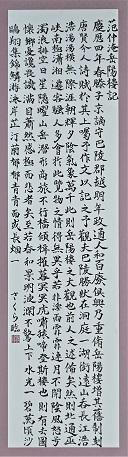 范仲淹岳陽樓記
慶曆四年春滕子京謫守巴陵郡越明年政通人和百廢俱興乃重脩岳陽樓增其舊制刻
唐賢今人詩賦於其上囑予作文以記之予觀夫巴陵勝狀在洞庭一湖銜遠山吞長江浩浩
湯湯橫無際涯朝暉夕陰氣象萬千此則岳陽樓之大觀也前人之述備矣然則北通巫
峽南極瀟湘遷客騷人多會於此覽物之情得無異乎若夫霪雨霏霏連月不開陰風怒號
濁浪排空日星隱曜山岳潛形商旅不行檣傾楫摧薄暮冥冥虎嘯猿啼登斯樓也則有去國
懷鄉憂讒畏譏滿目蕭然感極而悲者矣至若春和景明波瀾不驚上下天光一碧萬頃沙
鷗翔集錦鱗游泳岸芷汀蘭郁郁青青而或長煙